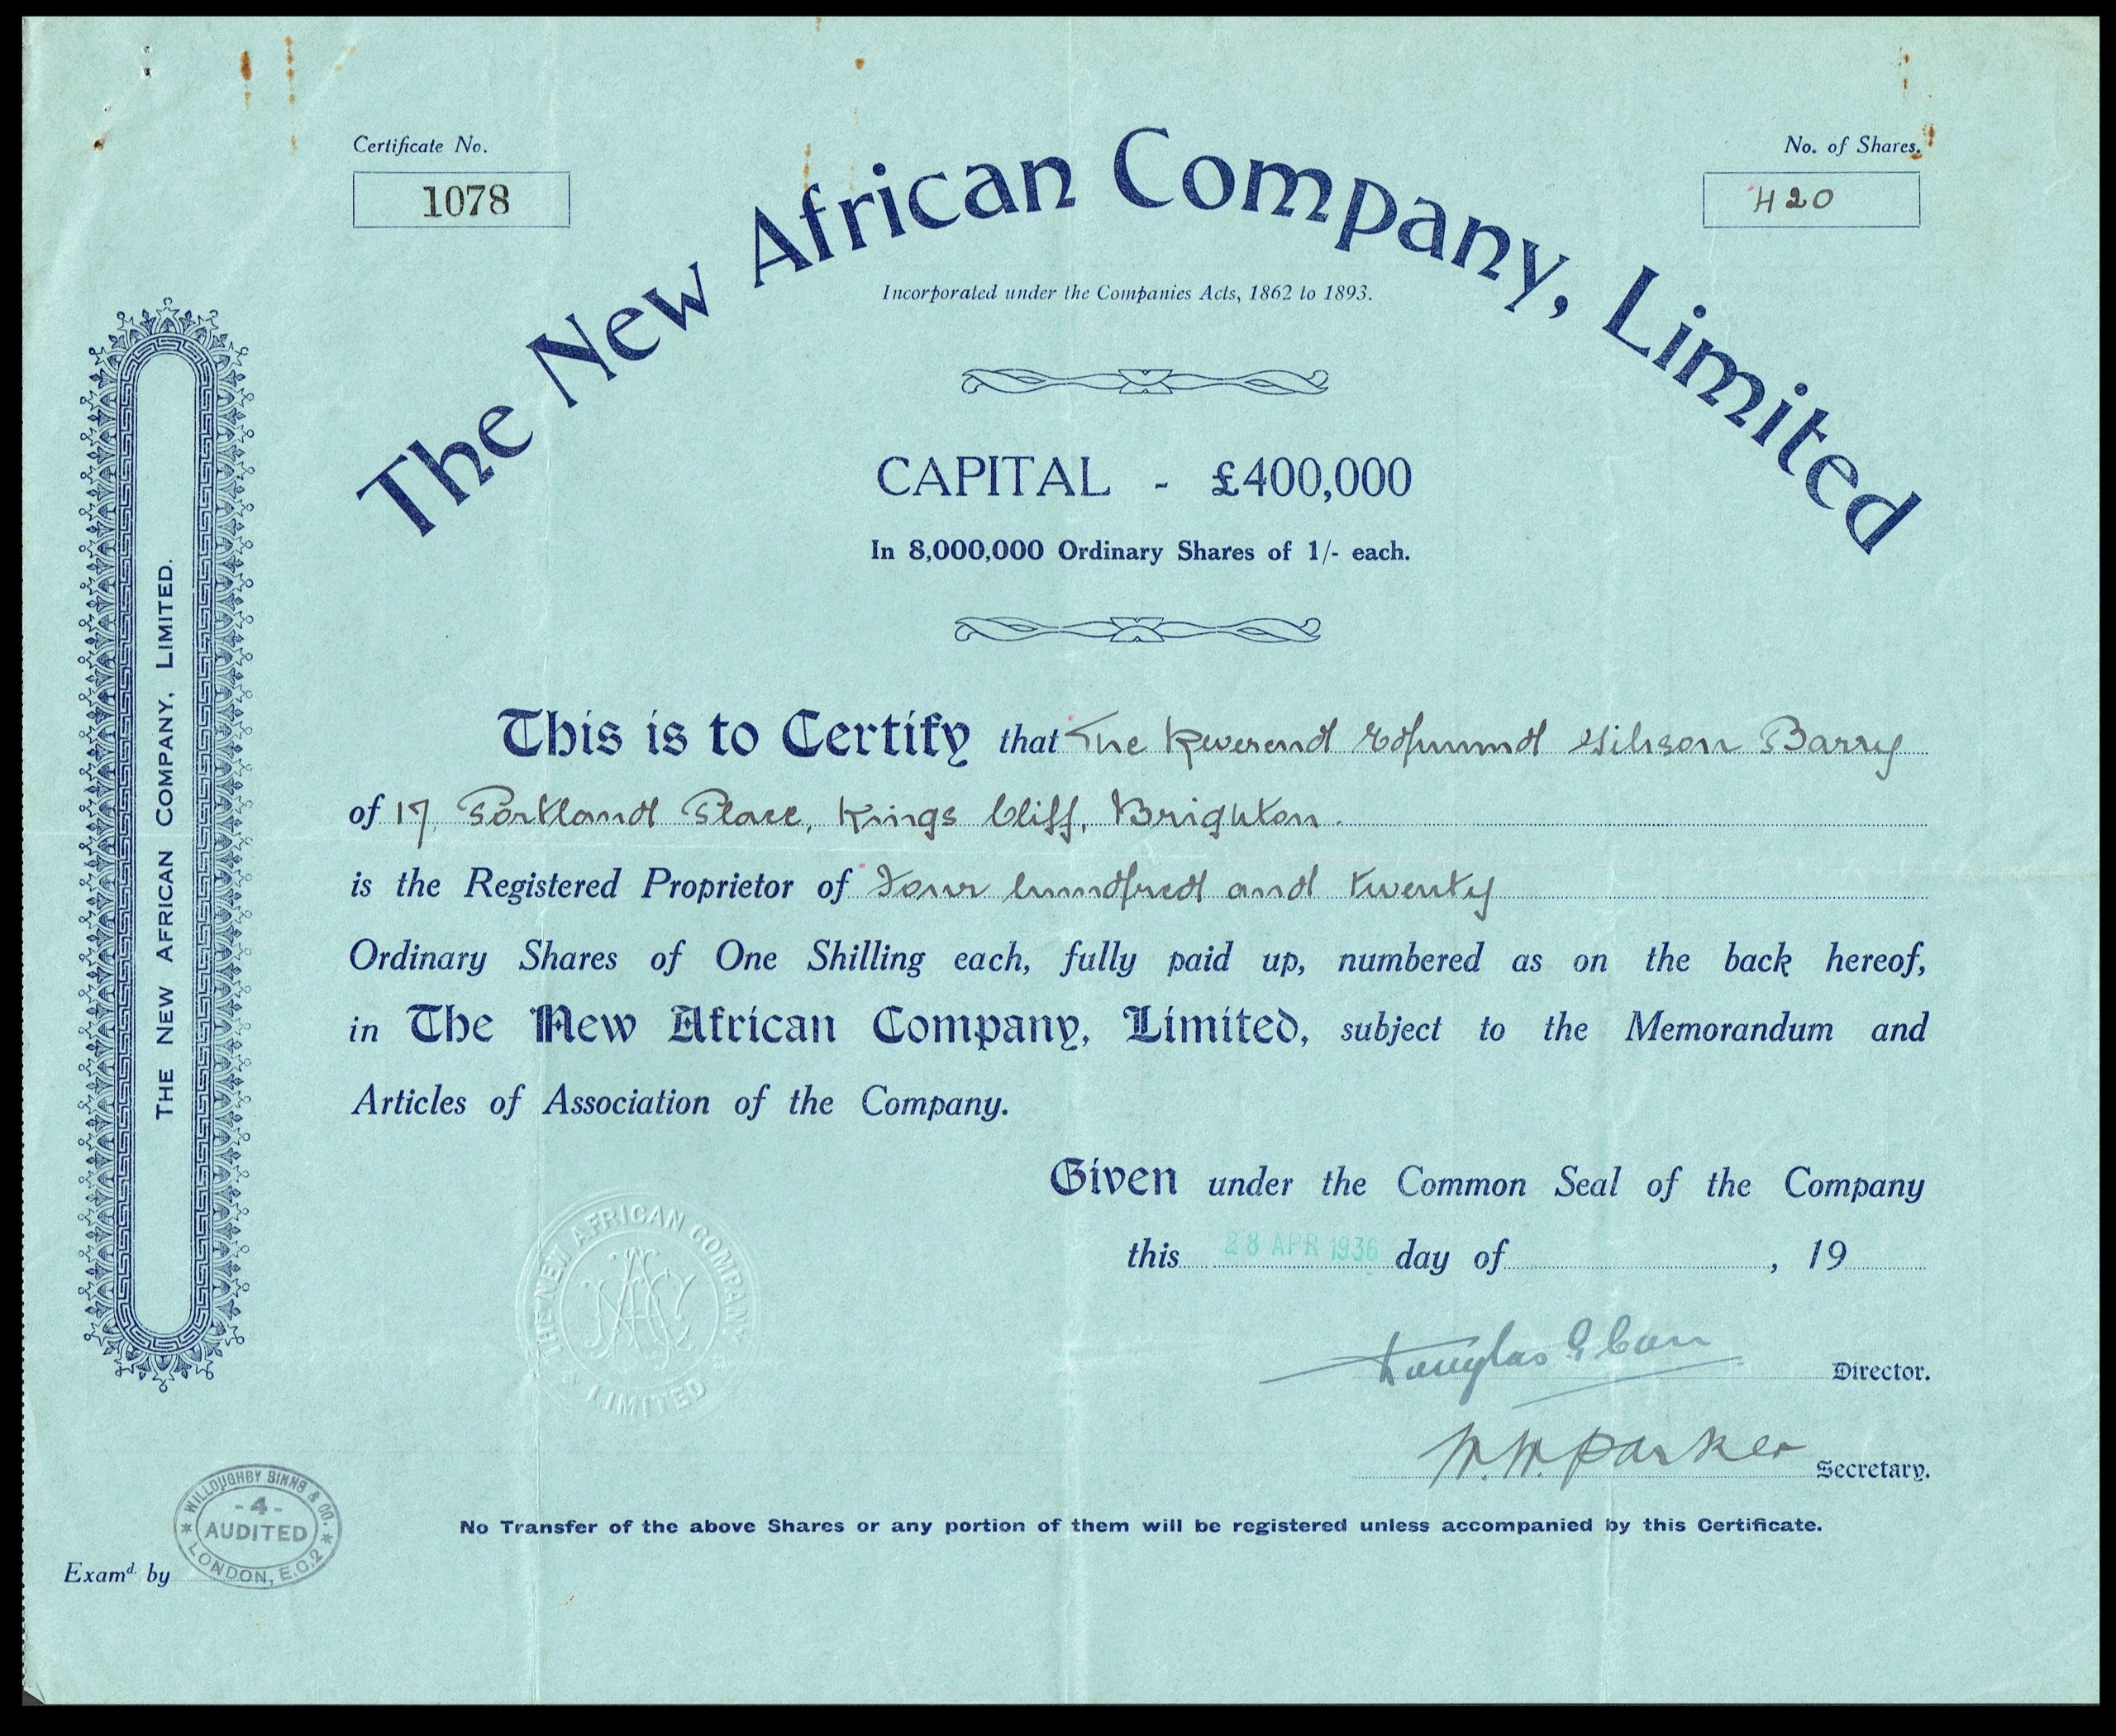 Certificate No.
1078
No. of Shares.
420
The New African Company, Limited
Incorporated under the Companies Acts, 1862 to 1893.
CAPITAL - £400,000
In 8,000,000 Ordinary Shares of 1/- each.
THE NEW AFRICAN COMPANY, LIMITED.
This is to Certify that The Reverend Edmund Gibson Barry
of 17, Portland Place, Kings Cliff, Brighton.
is the Registered Proprietor of Four hundred and twenty
Ordinary Shares of One Shilling each, fully paid up, numbered as on the back hereof,
in The New African Company, Limited, subject to the Memorandum and
Articles of Association of the Company.
Given under the Common Seal of the Company
this 28 APR 1936 day of , 19
THE NEW AFRICAN COMPANY
LIMITED
Douglas G
Director.
W. W. Parker
Secretary.
WILLOUGHBY BINNS & CO.
- 4 -
AUDITED
LONDON, E.C.2
No Transfer of the above Shares or any portion of them will be registered unless accompanied by this Certificate.
Examd. by